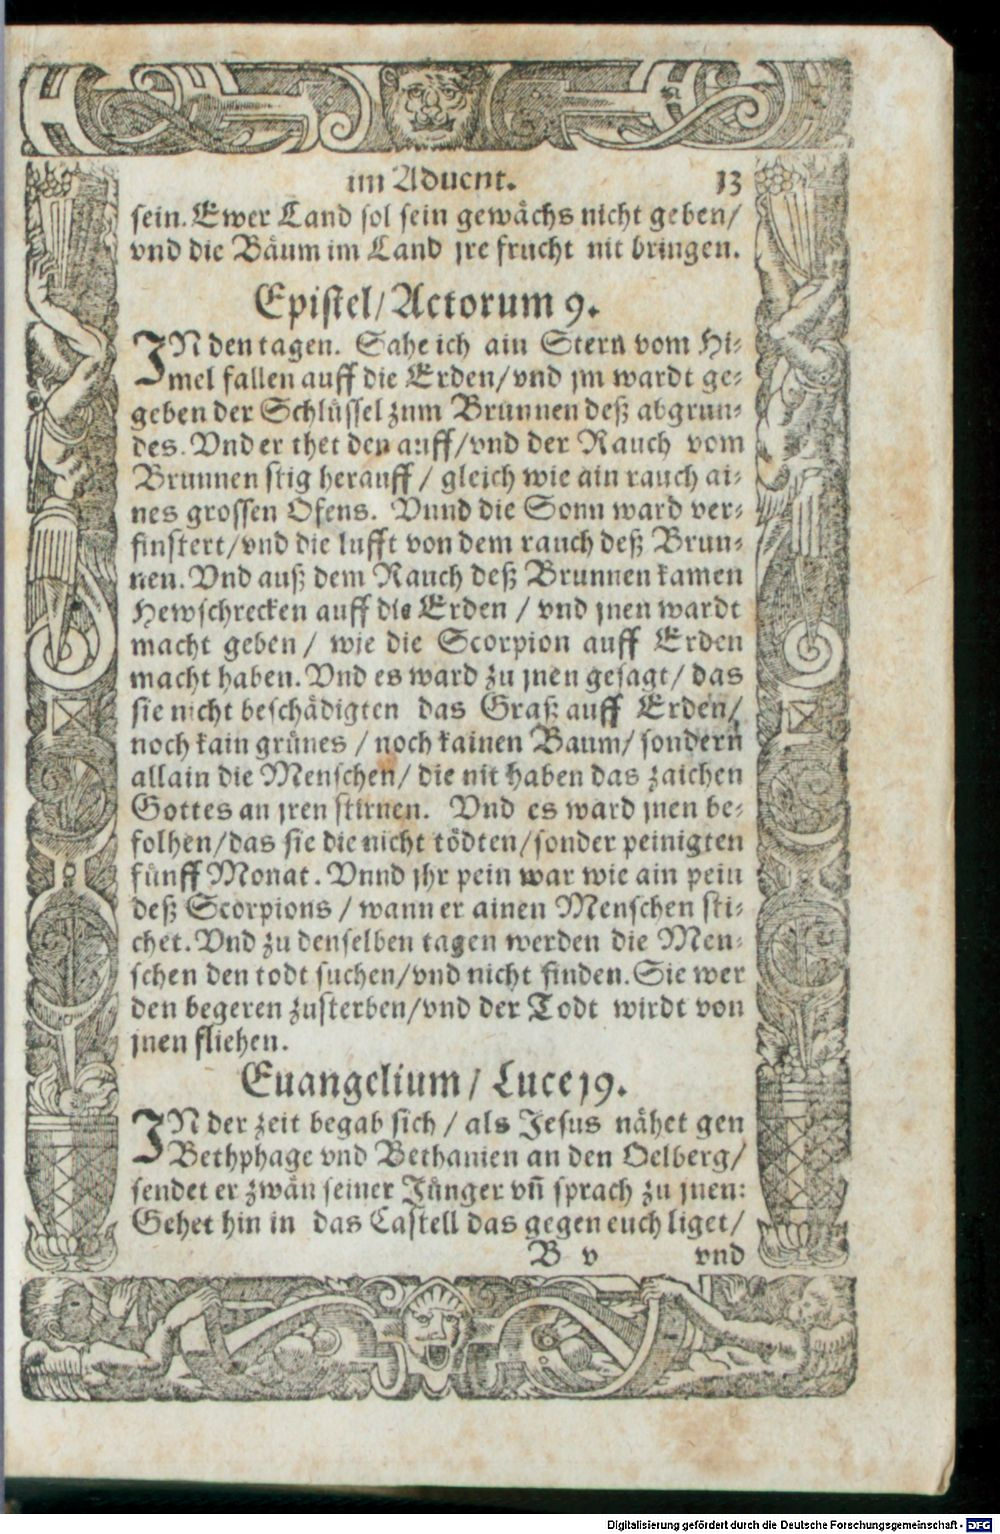 im Aduent. 13
sein. Ewer Land sol sein gewächs nicht geben/
vnd die Bäum im Land jre frucht nit bringen.
Epistel/ Actorum 9.
IN den tagen. Sahe ich ain Stern vom Hi-
mel fallen auff die Erden/ vnd jm wardt ge-
geben der Schlüssel zum Brunnen deß abgrun-
des. Vnd er thet den auff/ vnd der Rauch vom
Brunnen stig herauff / gleich wie ain rauch ai-
nes grossen Ofens. Vnnd die Sonn ward ver-
finstert/ vnd die lufft von dem rauch deß Brun-
nen. Vnd auß dem Rauch deß Brunnen kamen
Hewschrecken auff die Erden / vnd jnen wardt
macht geben / wie die Scorpion auff Erden
macht haben. Vnd es ward zu jnen gesagt/ das
sie nicht beschädigten das Graß auff Erden/
noch kain grünes / noch kainen Baum/ sondern
allain die Menschen/ die nit haben das zaichen
Gottes an jren stirnen. Vnd es ward jnen be-
folhen/ das sie die nicht tödten/ sonder peinigten
fünff Monat. Vnnd jhr pein war wie ain pein
deß Scorpions / wann er ainen Menschen sti-
chet. Vnd zu denselben tagen werden die Men-
schen den todt suchen/ vnd nicht finden. Sie wer
den begeren zusterben/ vnd der Todt wirdt von
jnen fliehen.
Euangelium / Luce 19.
IN der zeit begab sich / als Jesus nähet gen
Bethphage vnd Bethanien an den Oelberg/
sendet er zwän seiner Jünger vn̄ sprach zu jnen:
Gehet hin in das Castell das gegen euch liget/
B v vnd
Digitalisierung gefördert durch die Deutsche Forschungsgemeinschaft - DFG